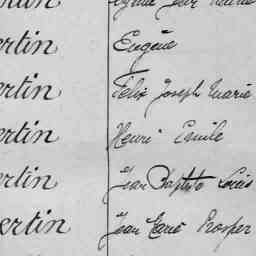 ertin Eugène
ertin Félix Joseph Marie
ertin Henri Emile
ertin Jean Baptiste Louis
ertin Jean Marie Prosper